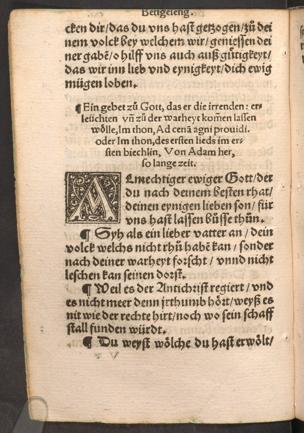 Betgeseng.
cken dir/das du vns hast getzogen/zů dei
nem volck bey welchem wir/geniessen dei
ner gabē/o hilff vns auch auß gůtigkeyt/
das wir inn lieb vnd eynigkeyt/dich ewig
mügen loben.
¶ Ein gebet zů Gott, das er die irrenden: er⸗
leüchten vñ zů der warheyt kom̃en lassen
wölle, Im thon, Ad cenā agni prouidi.
oder Im thon, des ersten lieds im er⸗
sten biechlin, Von Adam her,
so lange zeit.
ALmechtiger ewiger Gott/der
du nach deinem besten rhat/
deinen eynigen lieben son/für
vns hast lassen bůsse thůn.
¶ Syh als ein lieber vatter an/dein
volck welchs nicht rhů habē kan/sonder
nach deiner warheyt forscht/vnnd nicht
leschen kan seinen dorst.
¶ Weil es der Antichrist regiert/vnd
es nicht meer denn jrthumb hört/weyß es
nit wie der rechte hirt/noch wo sein schaff
stall funden würdt.
¶ Du weyst wölche du hast erwölt/